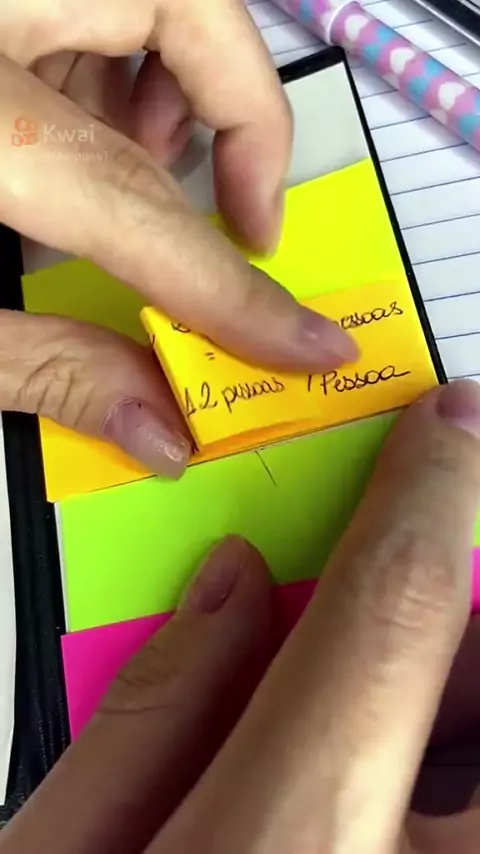 Kwai
essoas
=
12 pessoas 1 Pessoa